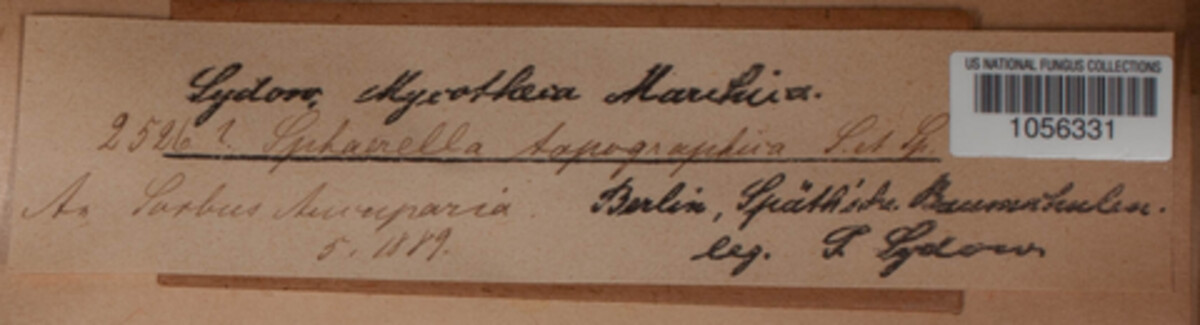 Sydow, Mycotheca Marchica.
2526? Sphaerella topographica S. et Sp.
An Sorbus Aucuparia.
5. 1889.
Berlin, Späth'sche Baumschulen.
leg. P. Sydow
US NATIONAL FUNGUS COLLECTIONS
1056331